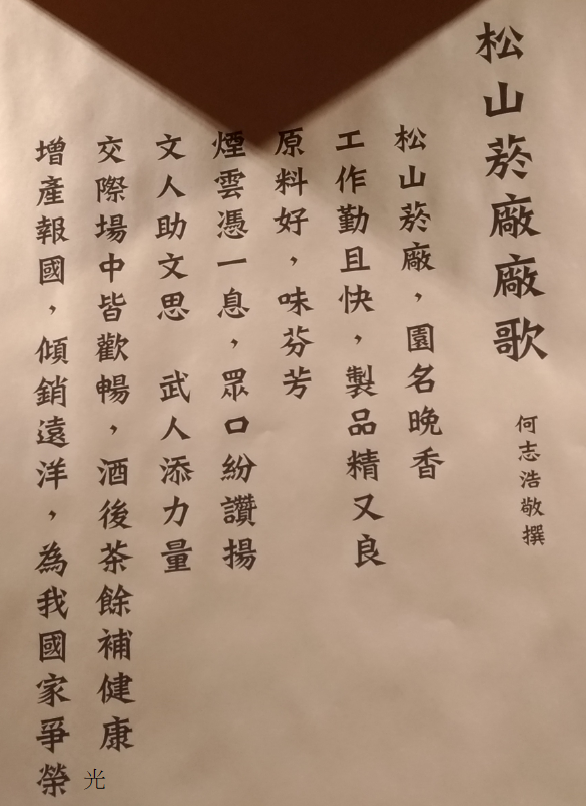 松山菸廠廠歌
何志浩敬撰
松山菸廠，園名晚香
工作勤且快，製品精又良
原料好，味芬芳
煙雲憑一息，眾口紛讚揚
文人助文思　武人添力量
交際場中皆歡暢，酒後茶餘補健康
增產報國，傾銷遠洋，為我國家爭榮
光